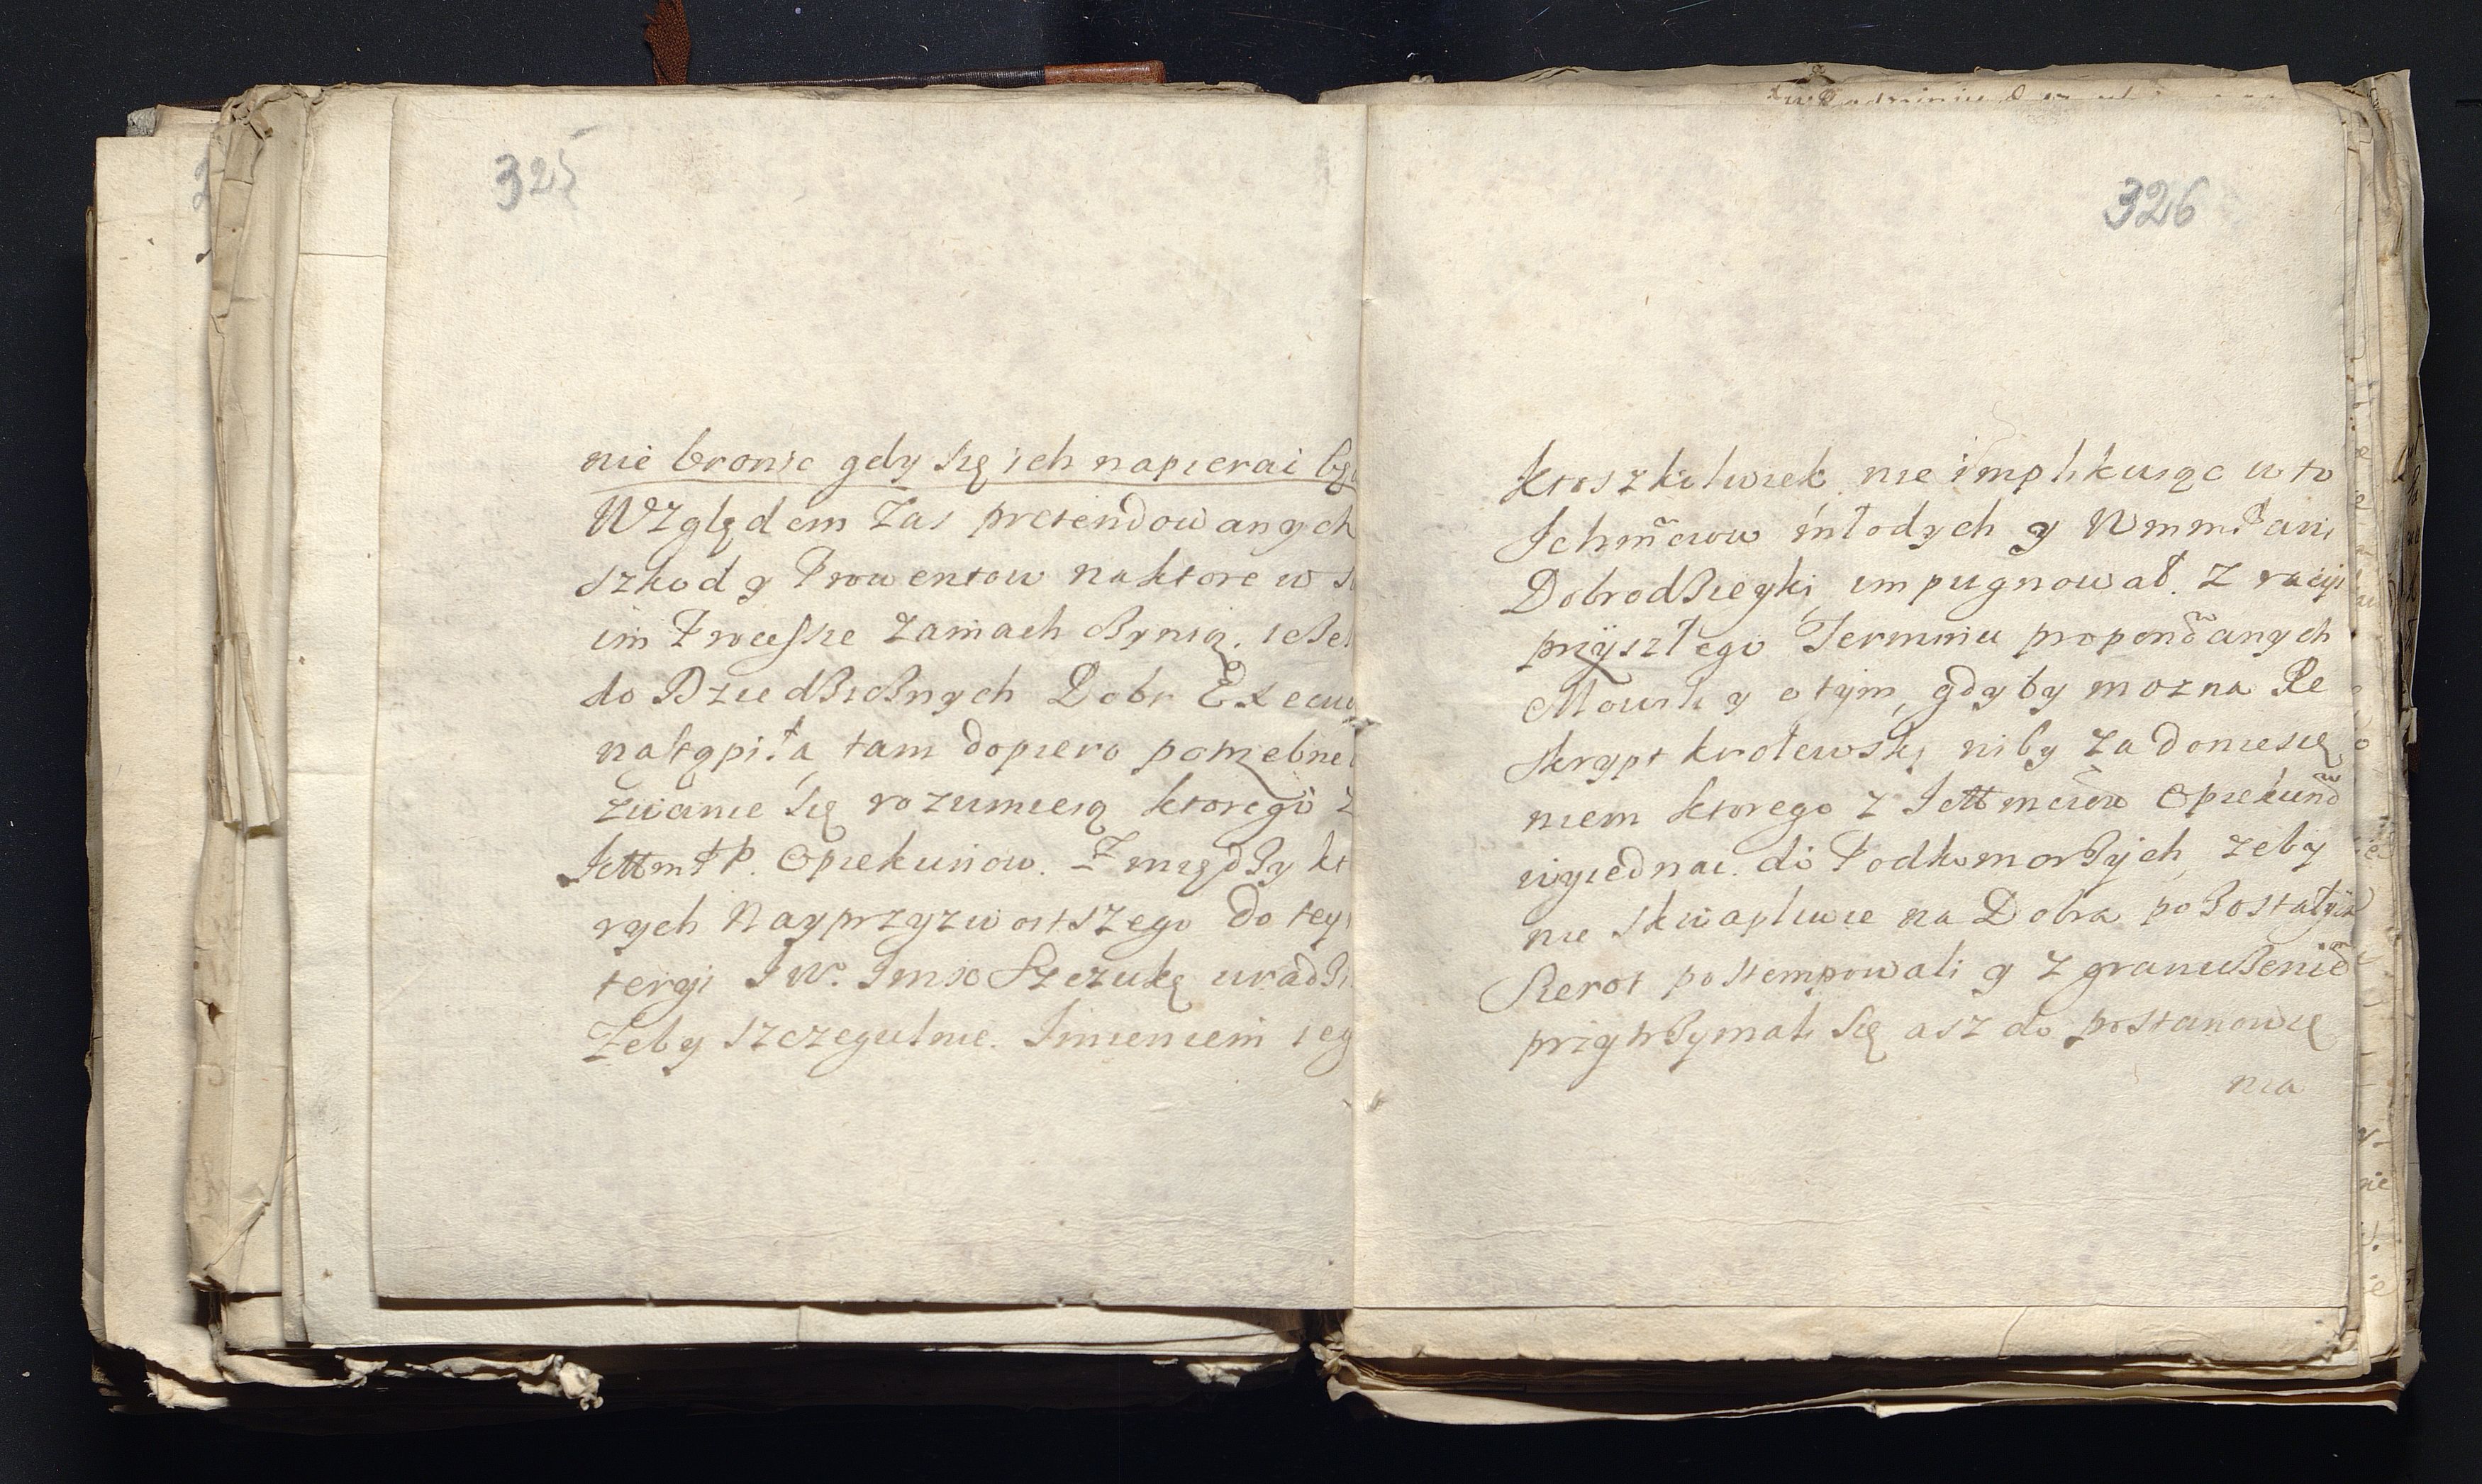 325
nie bronic gdy się ich napierac bę
Względem zas pretendowanych
szkod y Prowentow na ktore w s
im Processie zamach czynią. ieze
do Dziedzicznych Dobr Execu
nastąpiła tam dopiero potrzebne
zwanie się rozumieią ktorego z
IchmPP. Opiekunow. Z między kt
rych Nayprzyzwoitszego do tey
teryi JW. Imsc Szczukę uradzi
Zeby szczegulnie. Imieniem ieg
326
ktoszkolwiek nie implikuiąc w to
Ichmciow młodych y WmmPani
Dobrodzieyki impugnował. Z racyi
przyszłego Terminu proponowanych
Mowili y o tym, gdyby mozna Re
skrypt krolewski niby za doniesię
niem ktorego z Ichmciow Opiekunow
wyiednac do Podkomorzych, zeby
nie skwapliwie na Dobra pozostałych
Sierot postempowali y z graniczeniem
przytrzymali się asz do postanowię
nia